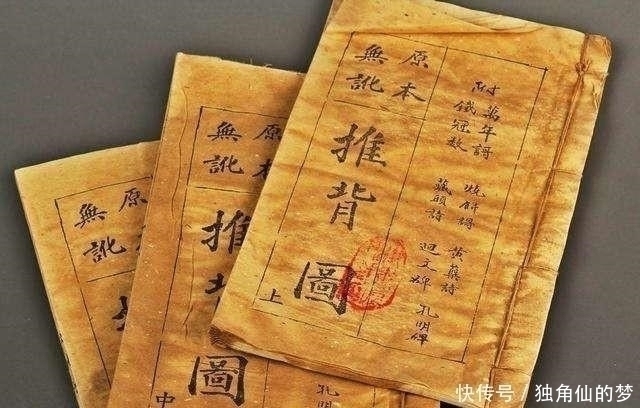 附
萬年謌 燒餅謌 黃蘗詩
鐵冠数 藏頭詩 迴文碑 孔明碑
原本
無訛
推背圖
上
原本
無訛
推背圖
中
孔明碑
原
無訛
快传号／独角仙的梦